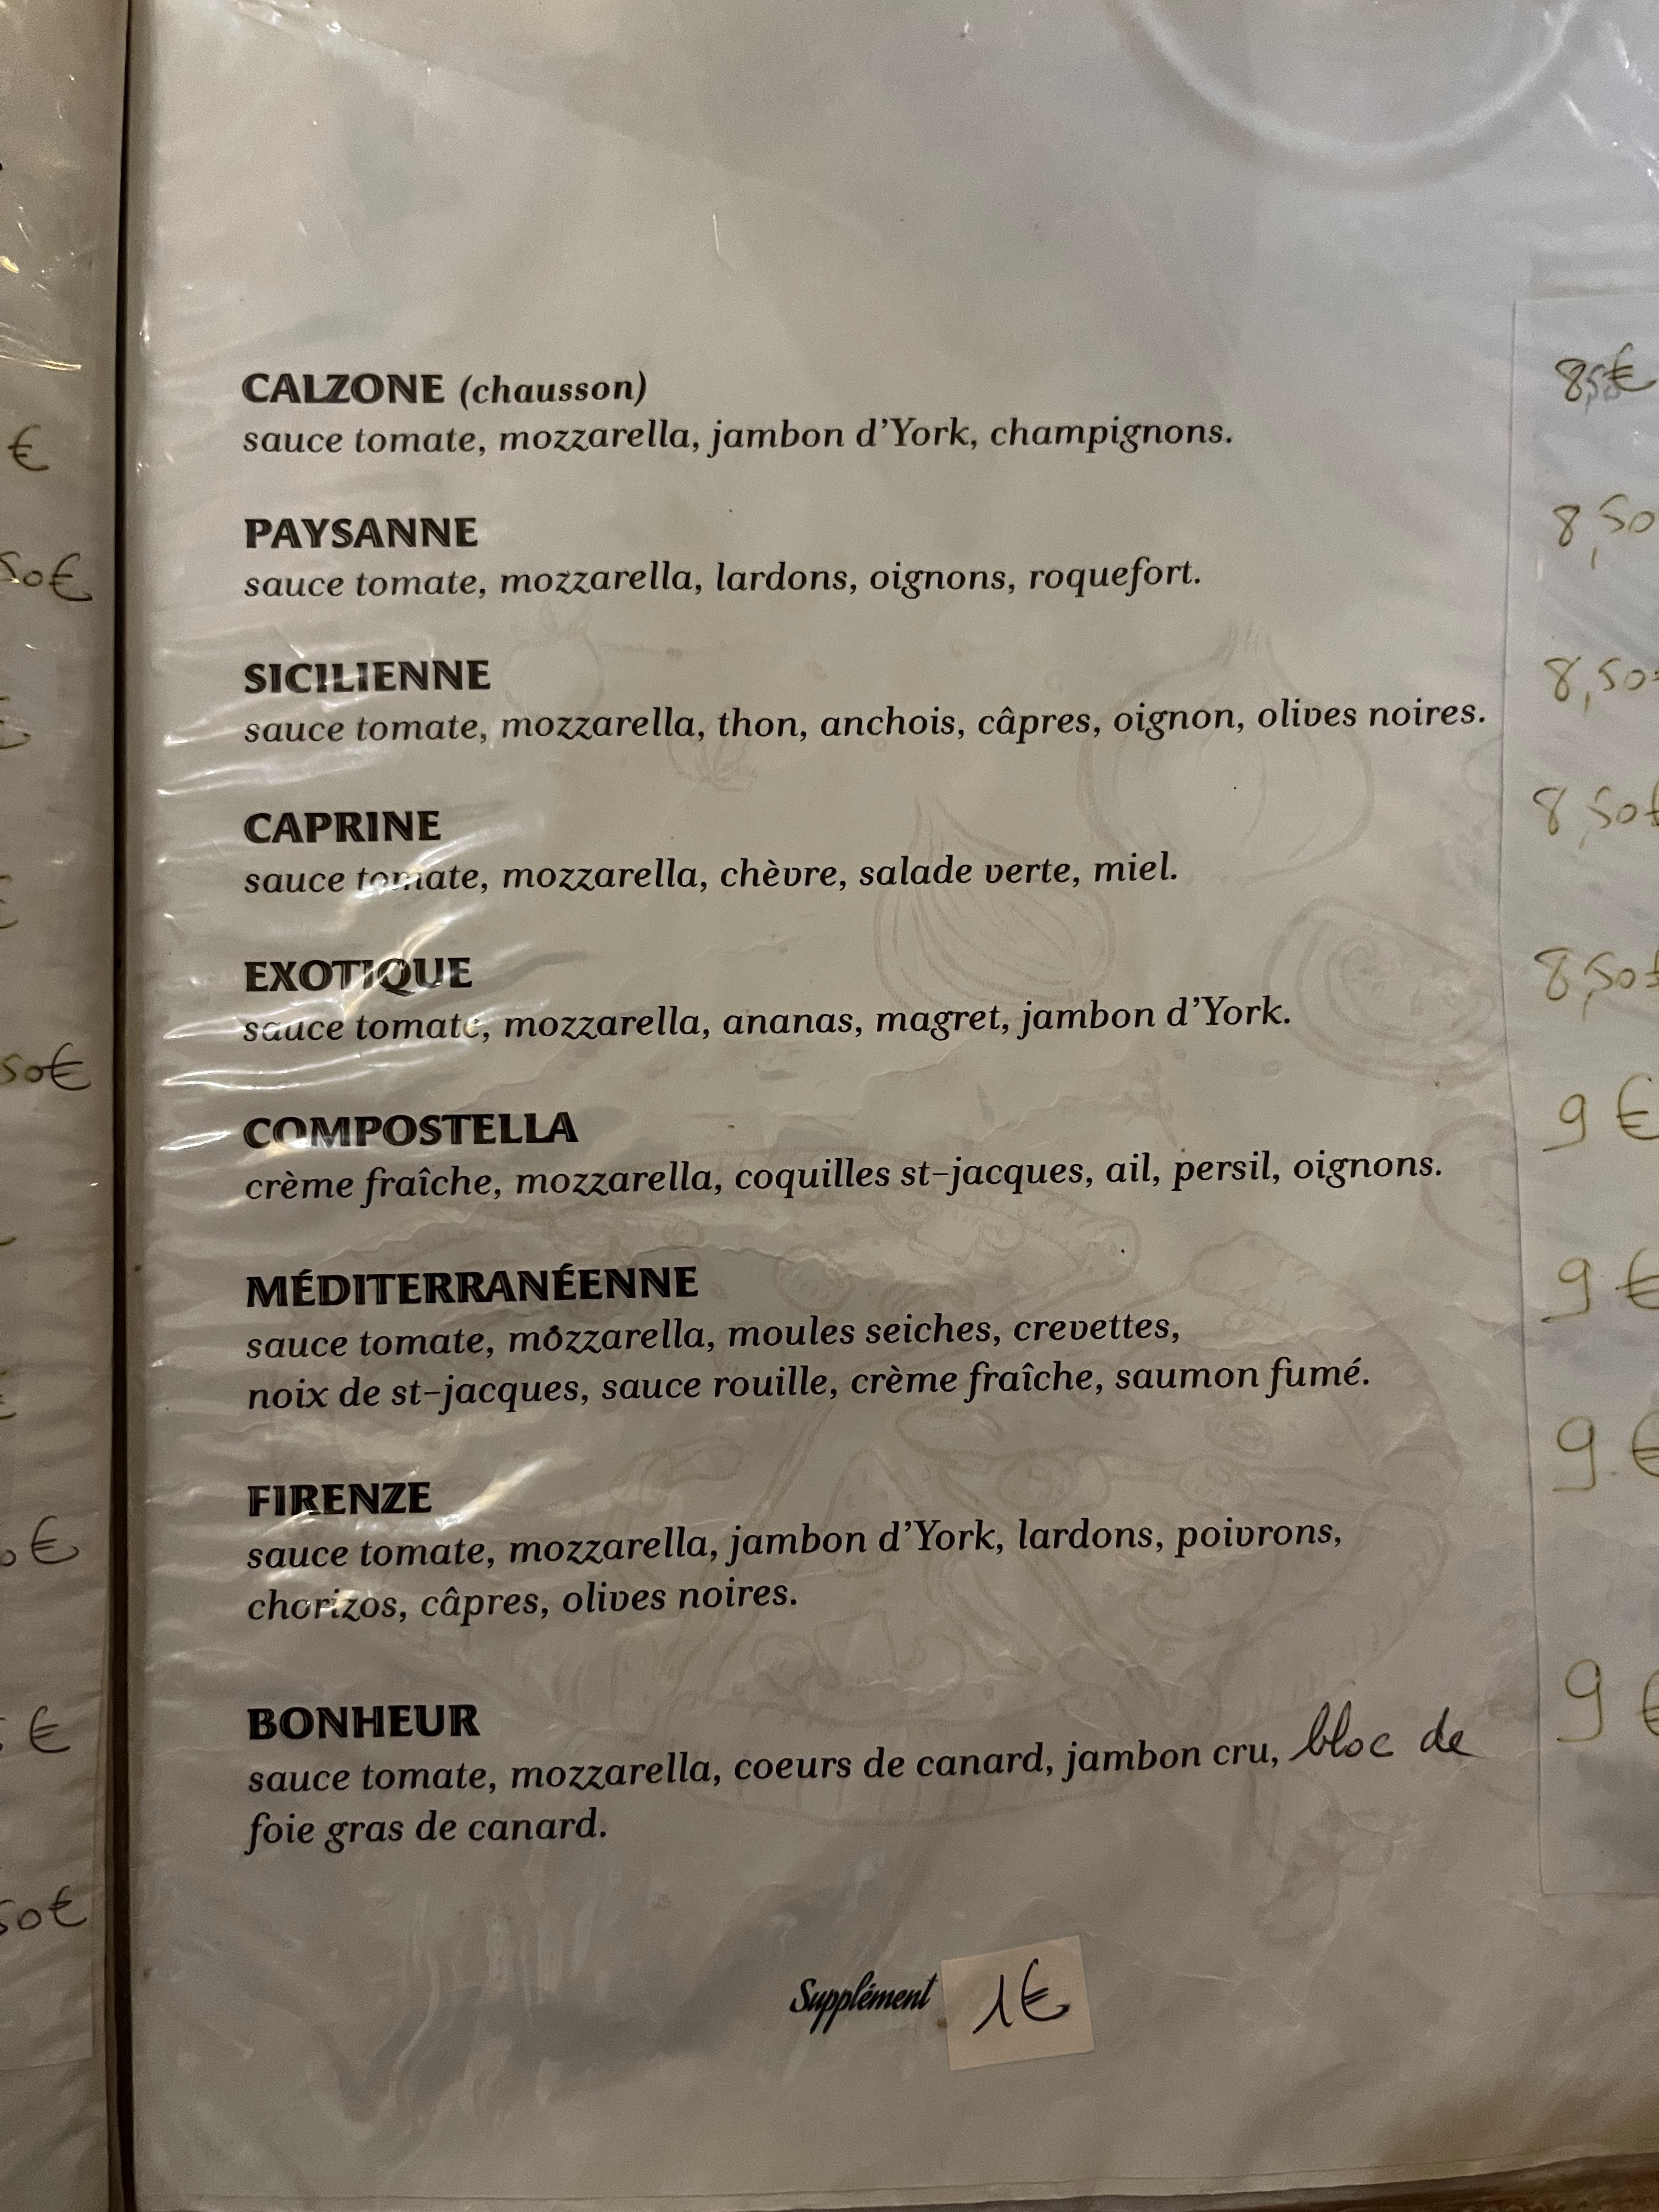 CALZONE (chausson)
sauce tomate, mozzarella, jambon d'York, champignons.
PAYSANNE
8,50
sauce tomate, mozzarella, lardons, oignons, roquefort.
SICILIENNE
8,50
sauce tomate, mozzarella, thon, anchois, câpres, oignon, olives noires.
CAPRINE
8,50€
sauce tomate, mozzarella, chèvre, salade verte, miel.
EXOTIQUE
8,50€
sauce tomate, mozzarella, ananas, magret, jambon d'York.
COMPOSTELLA
9 €
crème fraîche, mozzarella, coquilles st-jacques, ail, persil, oignons.
MÉDITERRANÉENNE
9 €
sauce tomate, mozzarella, moules seiches, crevettes,
noix de st-jacques, sauce rouille, crème fraîche, saumon fumé.
9 €
FIRENZE
sauce tomate, mozzarella, jambon d'York, lardons, poivrons,
chorizos, câpres, olives noires.
BONHEUR
9 €
sauce tomate, mozzarella, coeurs de canard, jambon cru, bloc de
foie gras de canard.
Supplément 1€